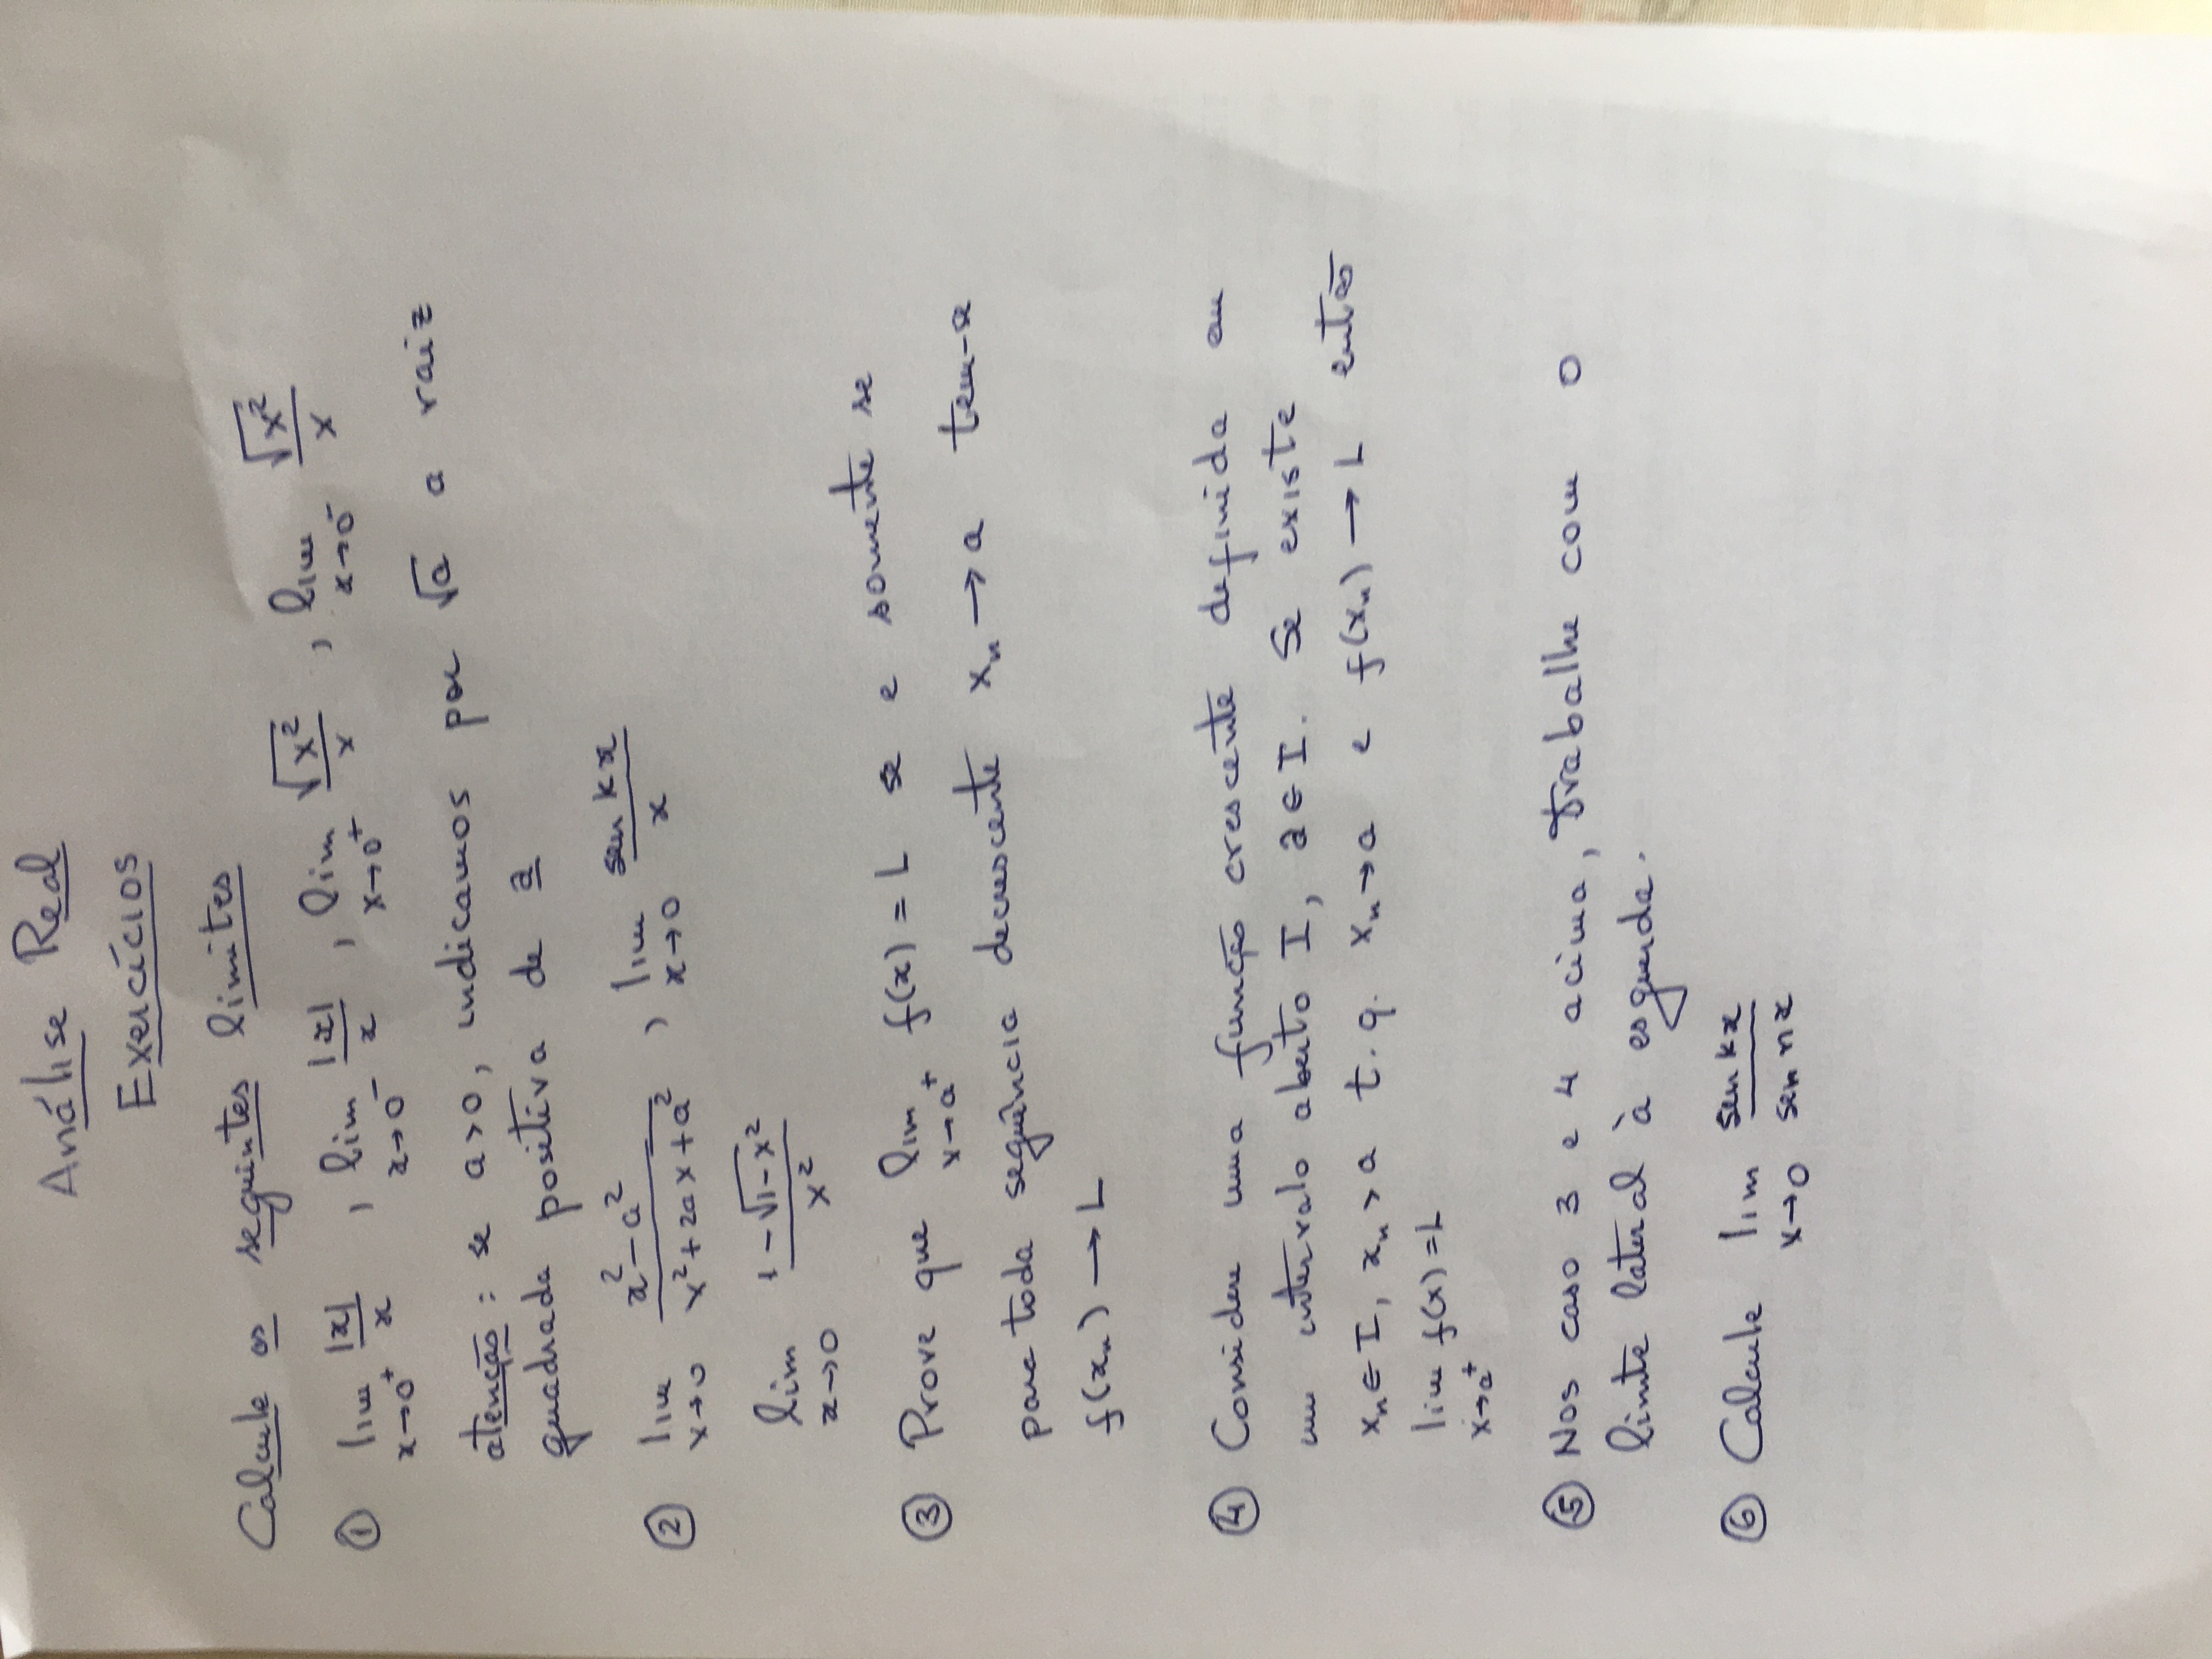 Análise Real
Exercícios
Calcule os seguintes limites
① lim x→0⁺ |x|/x , lim x→0⁻ |x|/x , lim x→0⁺ √x²/x , lim x→0⁻ √x²/x
atenção: se a>0, indicamos por √a a raiz
quadrada positiva de a
② lim x→0 (x²-a²)/(x²+2ax+a²) , lim x→0 sen kx/x
lim x→0 (1-√1-x²)/x²
③ Prove que lim x→a⁺ f(x) = L se e somente se
para toda sequência decrescente xₙ → a tem-se
f(xₙ) → L
④ Considere uma função crescente definida em
um intervalo aberto I, a∈I. Se existe
xₙ∈I, xₙ>a t.q. xₙ→a e f(xₙ)→L então
lim x→a⁺ f(x)=L
⑤ Nos caso 3 e 4 acima, trabalhe com o
limite lateral à esquerda.
⑥ Calcule lim x→0 sen kx/sen nx